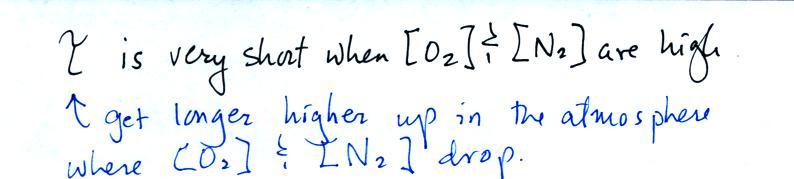 τ is very short when [O₂] & [N₂] are high
↑ get longer higher up in the atmosphere
where [O₂] & [N₂] drop.